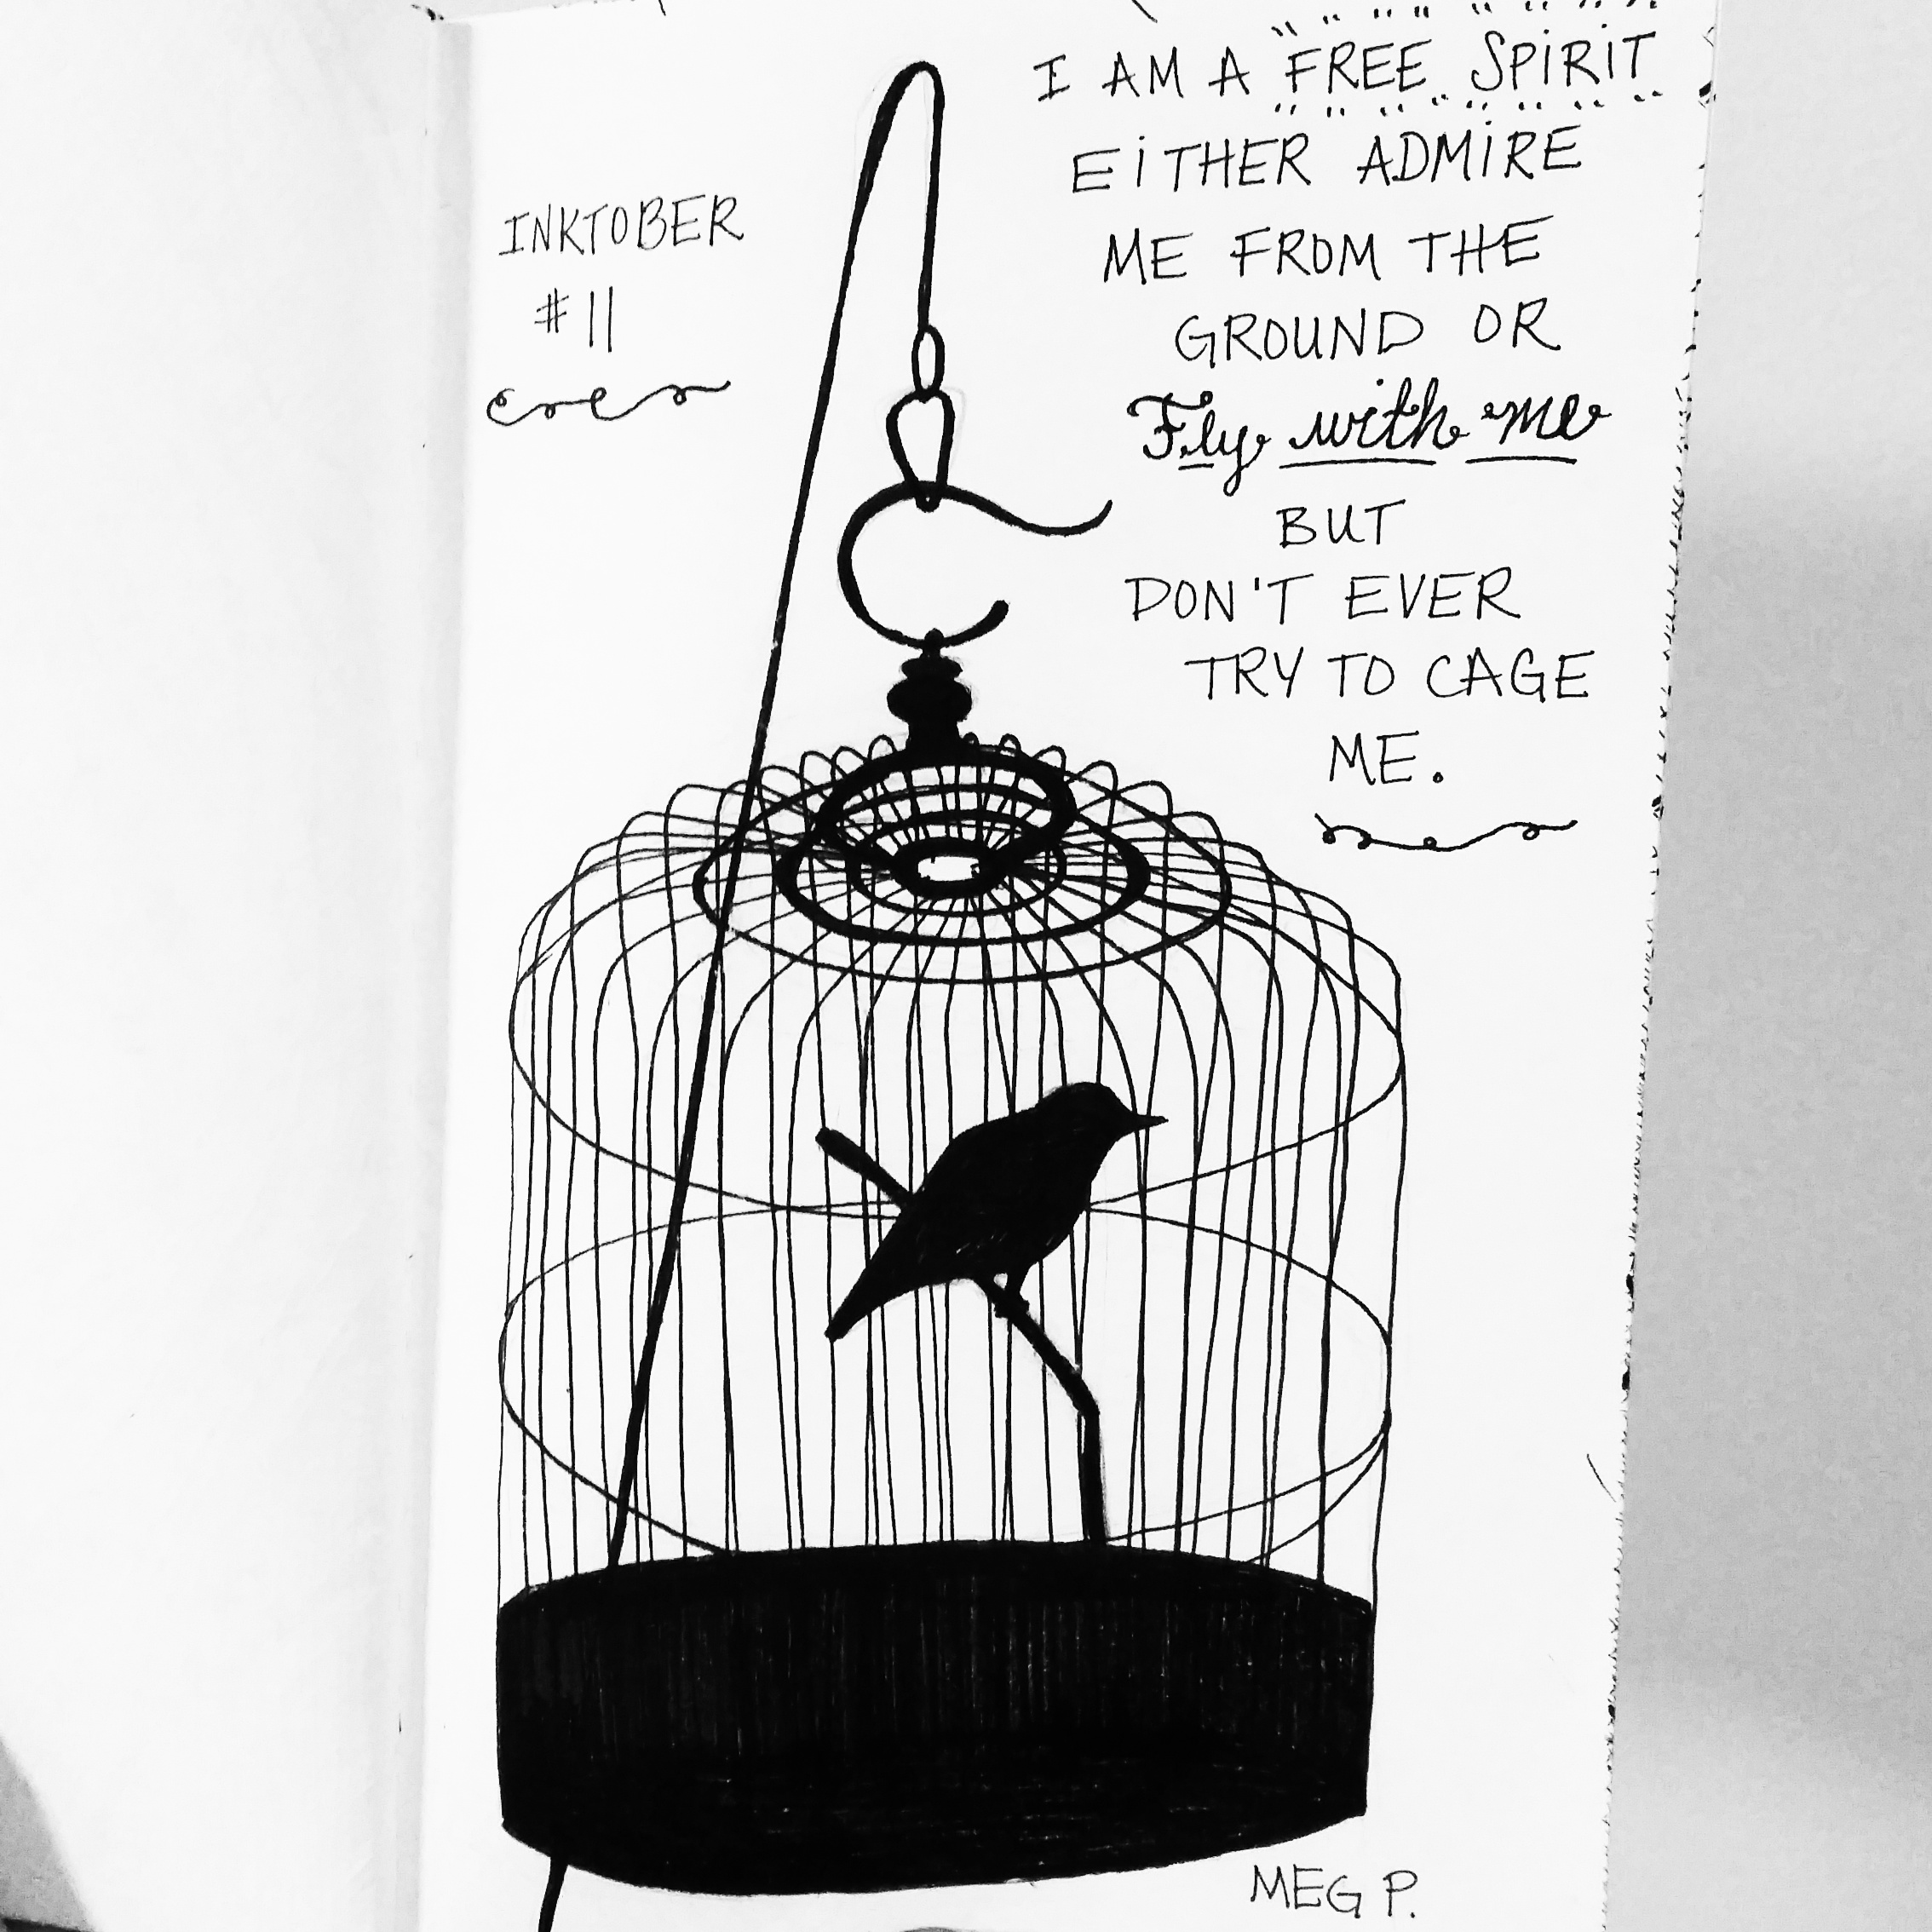 INKTOBER
#11
I AM A "FREE SPIRIT
EITHER ADMIRE
ME FROM THE
GROUND OR
Fly with me
BUT
DON'T EVER
TRY TO CAGE
ME.
MEG P.